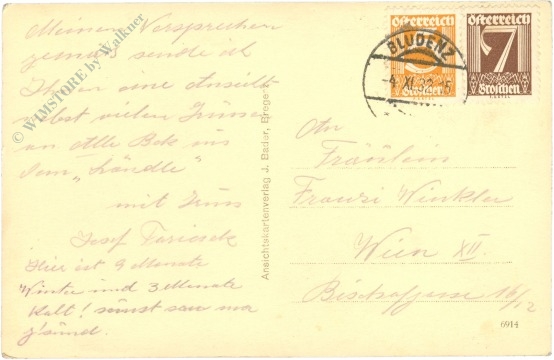 Meinem Versprechen
gemäß sende ich
Ihnen eine Ansicht
nebst vielen Grüßen
an Alle Bek aus
dem "Ländle"
mit Gruß
Josef
Hier ist 9 Monate
Winter und 3 Monate
kalt! sunst san ma
g'sund.
© WIMSTORE by Walkner
Ansichtskartenverlag J. Bader, Bregenz
Österreich
Groschen
Österreich
7
Groschen
BLUDENZ
An
Fräulein
Franzi Winkler
Wien XII.
Bischoffgasse 16/2
6914